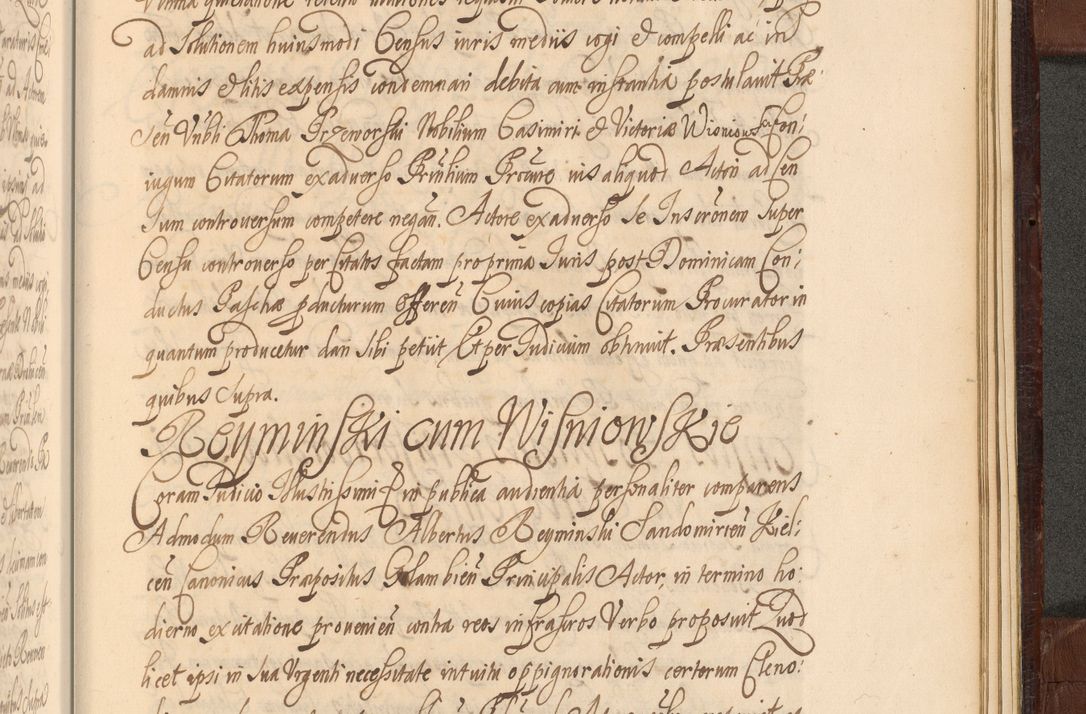 ad Solutionem huiusmodi Census iuris mediis cogi et compelli ac in
damnis et litis expensis condemnari debita cum instantia postulavit Præ
sen̄ Vnbli Thoma Przeworski Nobilium Casimiri et Victoriæ Con:
iugum Citatorum ex adverso Principalium ius aliquod Actori ad Cen
sum controversum competere negan̄. Actore ex adverso se Inscr̄onem super
Censu controverso per Citatos factam pro prima Iuris post Dominicam Con:
ductus Paschæ pducturum offeren̄ Cuius copias Citatorum Procurator in
quantum producetur dari sibi petiit Et per Iudicium obtinuit. Præsentibus
quibus supra.
Reyminski cum Wisniowskie
Coram Iudicio Illustrissimi in publica audientia personaliter comparens
Admodum Reverendus Albertus Reyminski Sandomirien̄ Kiel:
cen̄ Canonicus Præpositus Principalis Actor, in termino ho:
dierno ex citatione provenien̄ contra reos infrascros Verbo proposuit Quod
licet ipsi in sua Urgenti necessitate intuitu oppignorationis certorum Cleno: